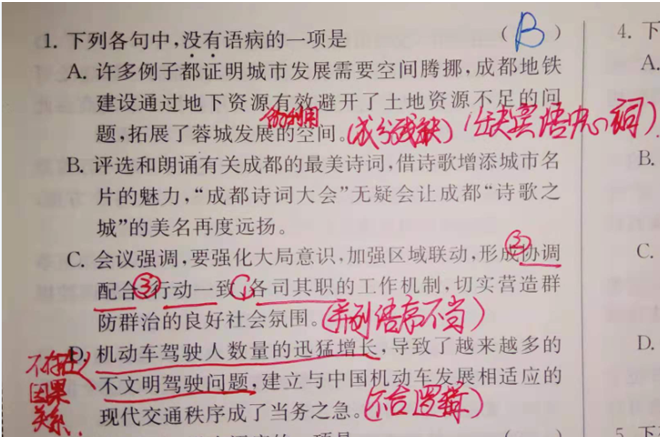 1. 下列各句中,没有语病的一项是 (B) 4. 下
A. 许多例子都证明城市发展需要空间腾挪,成都地铁 A.
建设通过地下资源有效避开了土地资源不足的问
的利用
题,拓展了蓉城发展的空间。(成分残缺)(缺宾语中心词)
B. 评选和朗诵有关成都的最美诗词,借诗歌增添城市名 B.
片的魅力,“成都诗词大会”无疑会让成都“诗歌之
城”的美名再度远扬。
C. 会议强调,要强化大局意识,加强区域联动,形成②协调 C.
配合③行动一致①、各司其职的工作机制,切实营造群
防群治的良好社会氛围。(并列语序不当)
D. 机动车驾驶人数量的迅猛增长,导致了越来越多的 D.
不存在
不文明驾驶问题,建立与中国机动车发展相适应的
因果
现代交通秩序成了当务之急。(不合逻辑)
关系.
5. 下